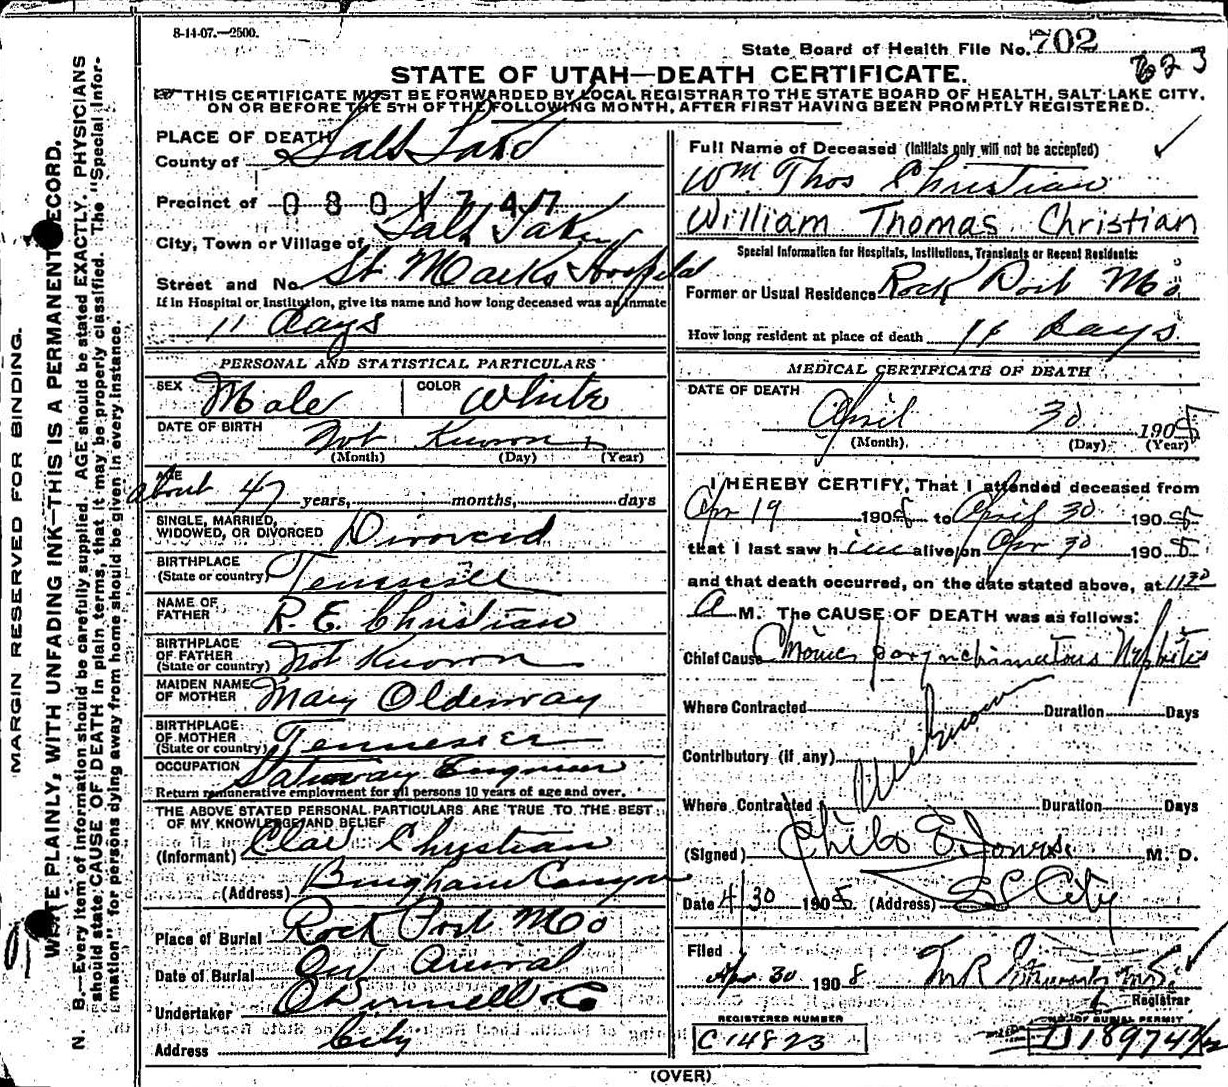 8-14-07.—2500.
State Board of Health File No. 702
623
STATE OF UTAH—DEATH CERTIFICATE.
THIS CERTIFICATE MUST BE FORWARDED BY LOCAL REGISTRAR TO THE STATE BOARD OF HEALTH, SALT LAKE CITY,
ON OR BEFORE THE 5TH OF THE FOLLOWING MONTH, AFTER FIRST HAVING BEEN PROMPTLY REGISTERED.
MARGIN RESERVED FOR BINDING.
WRITE PLAINLY, WITH UNFADING INK—THIS IS A PERMANENT RECORD.
N. B.—Every item of information should be carefully supplied. AGE should be stated EXACTLY. PHYSICIANS
should state CAUSE OF DEATH in plain terms, that it may be properly classified. The "Special Infor-
mation" for persons dying away from home should be given in every instance.
PLACE OF DEATH
County of Salt Lake
Precinct of 080 1747
City, Town or Village of Salt Lake
Street and No. St Marks Hospital
If in Hospital or Institution, give its name and how long deceased was an inmate
11 days
PERSONAL AND STATISTICAL PARTICULARS
SEX Male COLOR White
DATE OF BIRTH Not Known
(Month) (Day) (Year)
AGE about 47 years, months, days
SINGLE, MARRIED,
WIDOWED, OR DIVORCED Divorced
BIRTHPLACE
(State or country) Tennessee
NAME OF
FATHER R. E. Christian
BIRTHPLACE
OF FATHER
(State or country) Not Known
MAIDEN NAME
OF MOTHER Mary Oldenway
BIRTHPLACE
OF MOTHER
(State or country) Tennessee
OCCUPATION Engineer
Return remunerative employment for all persons 10 years of age and over.
THE ABOVE STATED PERSONAL PARTICULARS ARE TRUE TO THE BEST
OF MY KNOWLEDGE AND BELIEF
(Informant) Christian
(Address) Bingham Canyon
Place of Burial Rock Port Mo
Date of Burial On Arrival
Undertaker O'Donnell & Co
Address City
Full Name of Deceased (Initials only will not be accepted)
Wm Thos Christian
William Thomas Christian
Special Information for Hospitals, Institutions, Transients or Recent Residents:
Former or Usual Residence Rock Port Mo
How long resident at place of death 11 days
MEDICAL CERTIFICATE OF DEATH
DATE OF DEATH
April 30 1908
(Month) (Day) (Year)
I HEREBY CERTIFY, That I attended deceased from
Apr 19 1908 to April 30 1908
that I last saw him alive on Apr 30 1908
and that death occurred, on the date stated above, at 1130
A M. The CAUSE OF DEATH was as follows:
Chief Cause Chronic parynchimatous Nephritis
Where Contracted Duration Days
Unknown
Contributory (if any)
Where Contracted Duration Days
(Signed) Philo E Jones M. D.
Date 4/30 1908 (Address) SL City
Filed
Apr 30 1908 M R
Registrar
REGISTERED NUMBER
C 14823
NO. OF BURIAL PERMIT
D 18974
(OVER)